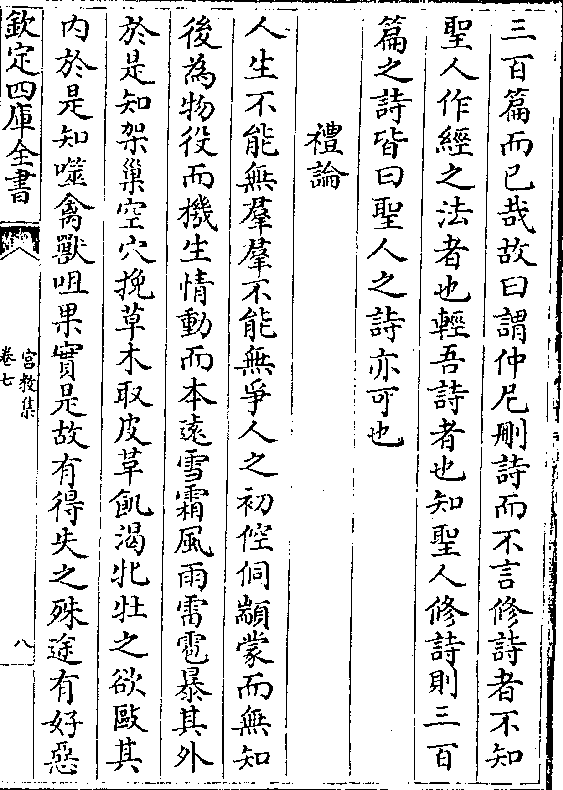 三百篇而已哉故曰謂仲尼刪詩而不言修詩者不知
聖人作經之法者也輕吾詩者也知聖人修詩則三百
篇之詩皆曰聖人之詩亦可也
禮論
人生不能無羣羣不能無爭人之初倥侗顓蒙而無知
後為物役而機生情動而本逺雪霜風雨雷雹暴其外
於是知架巢空穴挽草木取皮草飢渴牝牡之欲敺其
内於是知噬禽獸咀果實是故有得失之殊途有好惡
欽定四庫全書
宫教集
卷七
八